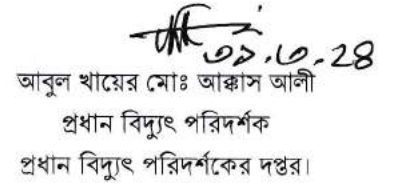 ৩১.৩.২৪
আবুল খায়ের মোঃ আক্কাস আলী
প্রধান বিদ্যুৎ পরিদর্শক
প্রধান বিদ্যুৎ পরিদর্শকের দপ্তর।